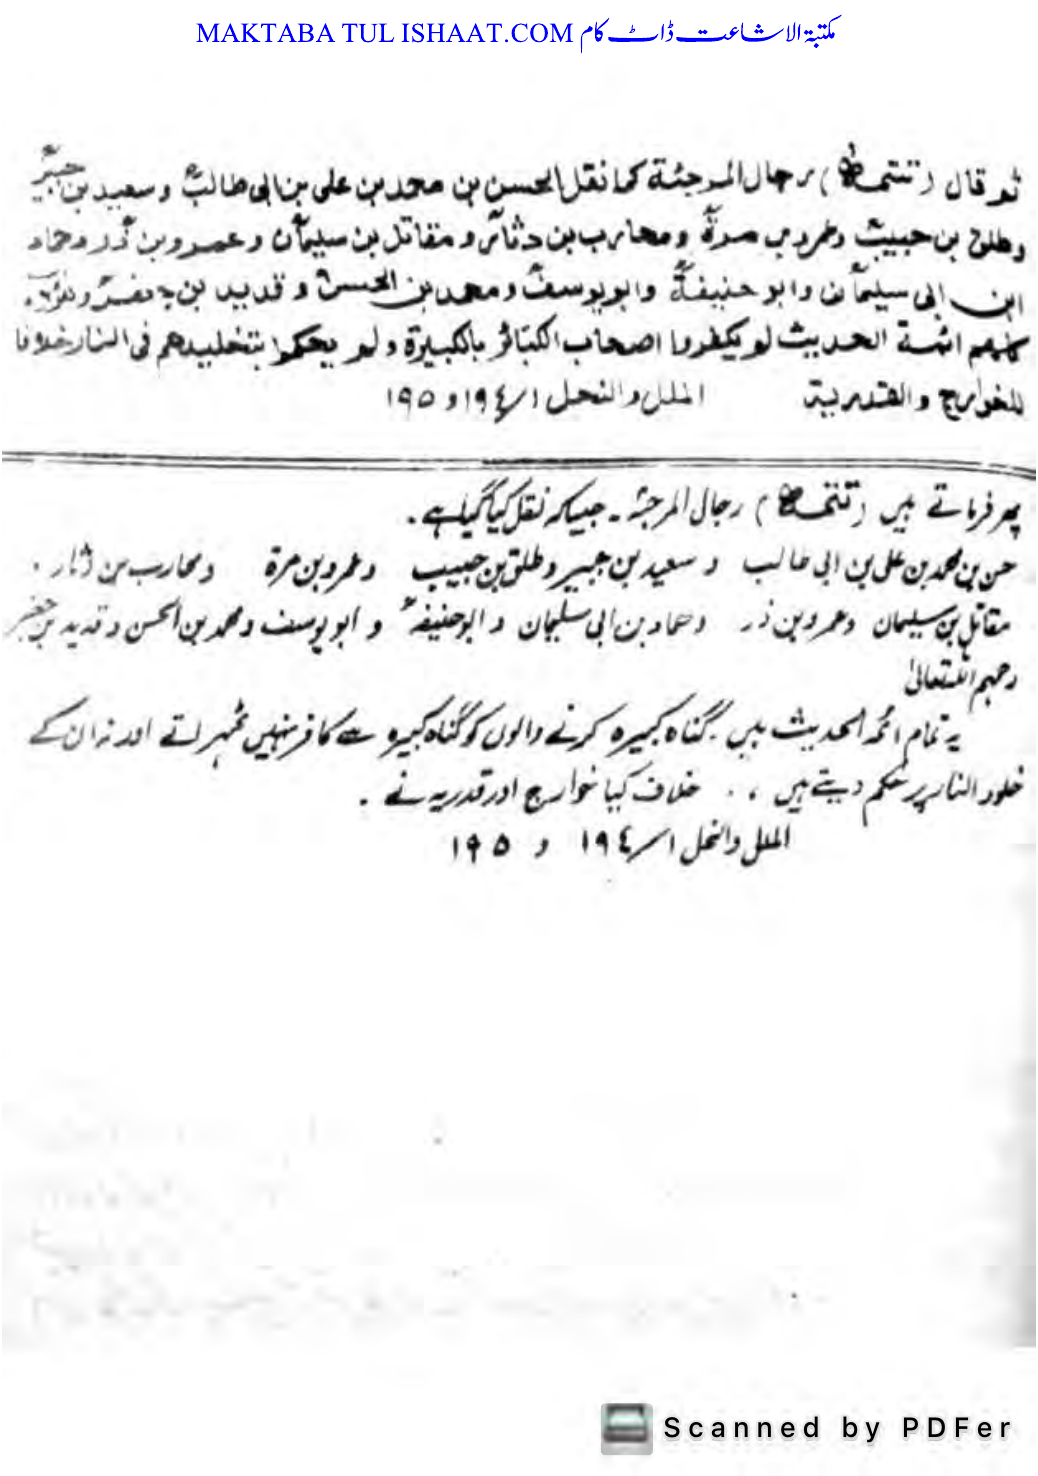 MAKTABA TUL ISHAAT.COM مکتبۃ الاشاعت ڈاٹ کام
ثم قال (تتمہ) رجال المرجئة كما نقل الحسن بن محمد بن علی بن ابی طالبؓ وسعید بن جبیرؒ
وطلق بن حبیبؒ وعمرو بن مرةؒ ومحارب بن دثارؒ ومقاتل بن سلیمانؒ وعمرو بن ذرؒ وحماد
ابن ابی سلیمانؒ وابو حنیفةؒ وابو یوسفؒ ومحمد بن الحسنؒ وقدید بن جعفرؒ وهؤلاء
كلهم ائمة الحدیث لم یکفروا اصحاب الکبائر بالکبیرة ولم یحکموا بتخلیدهم فی النار خلافا
للخوارج والقدریة الملل والنحل ١/١٩٤ و ١٩٥
پھر فرماتے ہیں (تتمہ) رجال المرجئہ ۔ جیسا کہ نقل کیا گیا ہے ۔
حسن بن محمد بن علی بن ابی طالب و سعید بن جبیر و طلق بن حبیب و عمرو بن مرة و محارب بن دثار ۔
مقاتل بن سلیمان و عمرو بن ذر و حماد بن ابی سلیمان و ابو حنیفہؒ و ابو یوسف و محمد بن الحسن و قدید بن جعفر
رحمہم اللہ تعالیٰ
یہ تمام ائمہ الحدیث ہیں ۔ گناہ کبیرہ کرنے والوں کو گناہ کبیرہ سے کافر نہیں ٹھہراتے اور نہ ان کے
خلود النار پر حکم دیتے ہیں ،، خلاف کیا خوارج اور قدریہ نے ۔
الملل والنحل ١/١٩٤ و ١٩٥
Scanned by PDFer